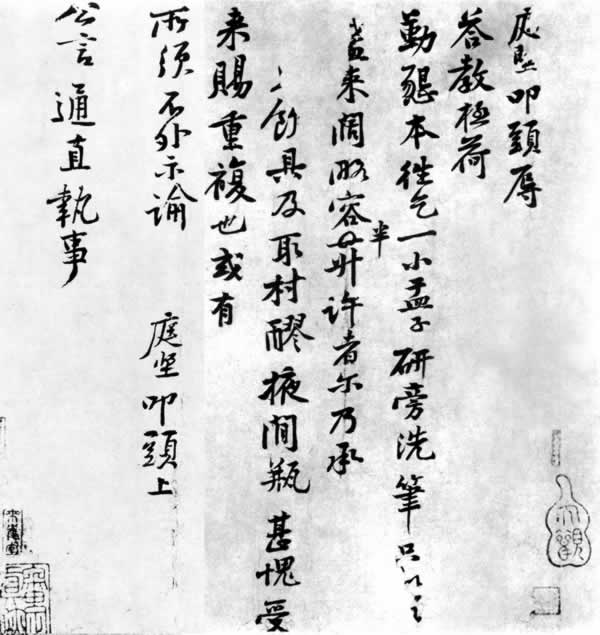 庭堅叩頭辱
答教極荷
勤懇本往乞一小盂子研旁洗筆
来闊略容半升許者尔乃承
飲具及取村醪掖間瓶甚愧受
来賜重複也或有
所須不外示諭
庭坚叩頭上
公言通直執事